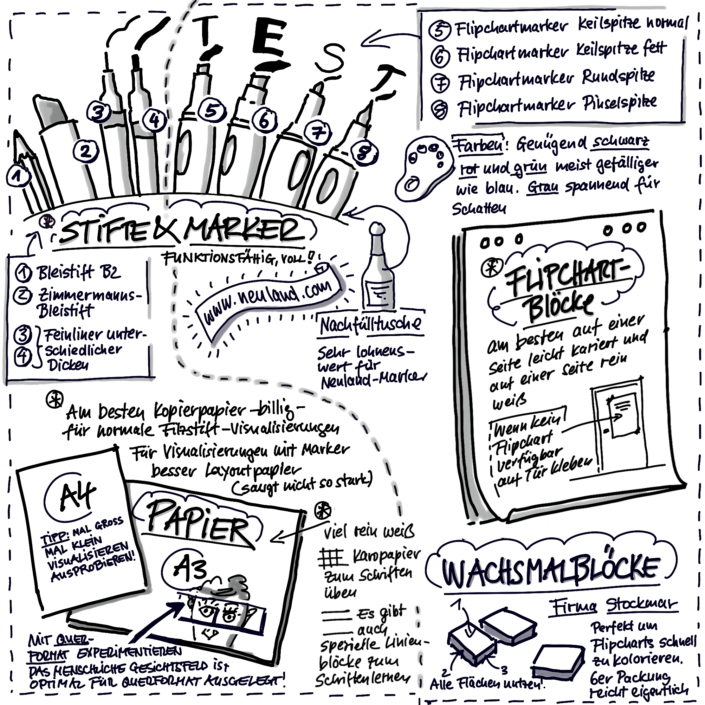 TEST
⑤ Flipchartmarker Keilspitze normal
⑥ Flipchartmarker Keilspitze fett
⑦ Flipchartmarker Rundspitze
⑧ Flipchartmarker Pinselspitze
1
2
3
4
5
6
7
8
Farben: Genügend schwarz
rot und grün meist gefälliger
wie blau. Grau spannend für
Schatten
* STIFTE & MARKER
FUNKTIONSFÄHIG, VOLL!
① Bleistift B2
② Zimmermanns-
Bleistift
③ Feinliner unter-
④ schiedlicher
Dicken
www.neuland.com
Nachfülltusche
Sehr lohnens-
wert für
Neuland-Marker
* FLIPCHART-
BLÖCKE
am besten auf einer
Seite leicht kariert und
auf einer Seite rein
weiß
Wenn kein
Flipchart
verfügbar
auf Tür kleben
* Am besten Kopierpapier -billig-
für normale Filzstift-Visualisierungen
Für Visualisierungen mit Marker
besser Layoutpapier
(saugt nicht so stark)
A4
TIPP: MAL GROSS
MAL KLEIN
VISUALISIEREN
AUSPROBIEREN!
PAPIER
A3
MIT QUER-
FORMAT EXPERIMENTIEREN
DAS MENSCHLICHE GESICHTSFELD IST
OPTIMAL FÜR QUERFORMAT AUSGELEGT!
*
viel rein weiß
Karopapier
zum Schriften
üben
Es gibt
auch
spezielle Linien-
blöcke zum
Schriftenlernen
WACHSMALBLÖCKE
Firma Stockmar
1
2
3
Alle Flächen nutzen!
Perfekt um
Flipcharts schnell
zu kolorieren.
6er Packung
reicht eigentlich